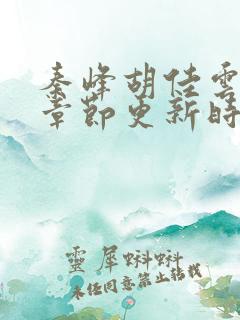 秦峰胡佳雲
章節更新時
靈犀蝌蚪
未經同意禁止轉載